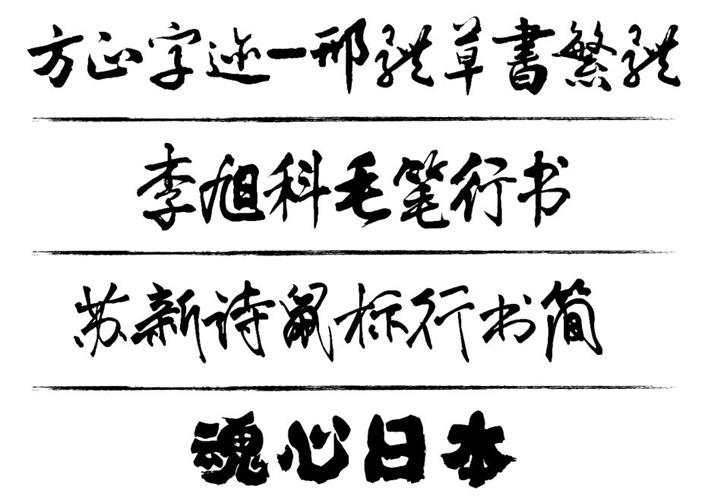 方正字迹一邢體草書繁體
李旭科毛笔行书
苏新诗鼠标行书简
魂心日本